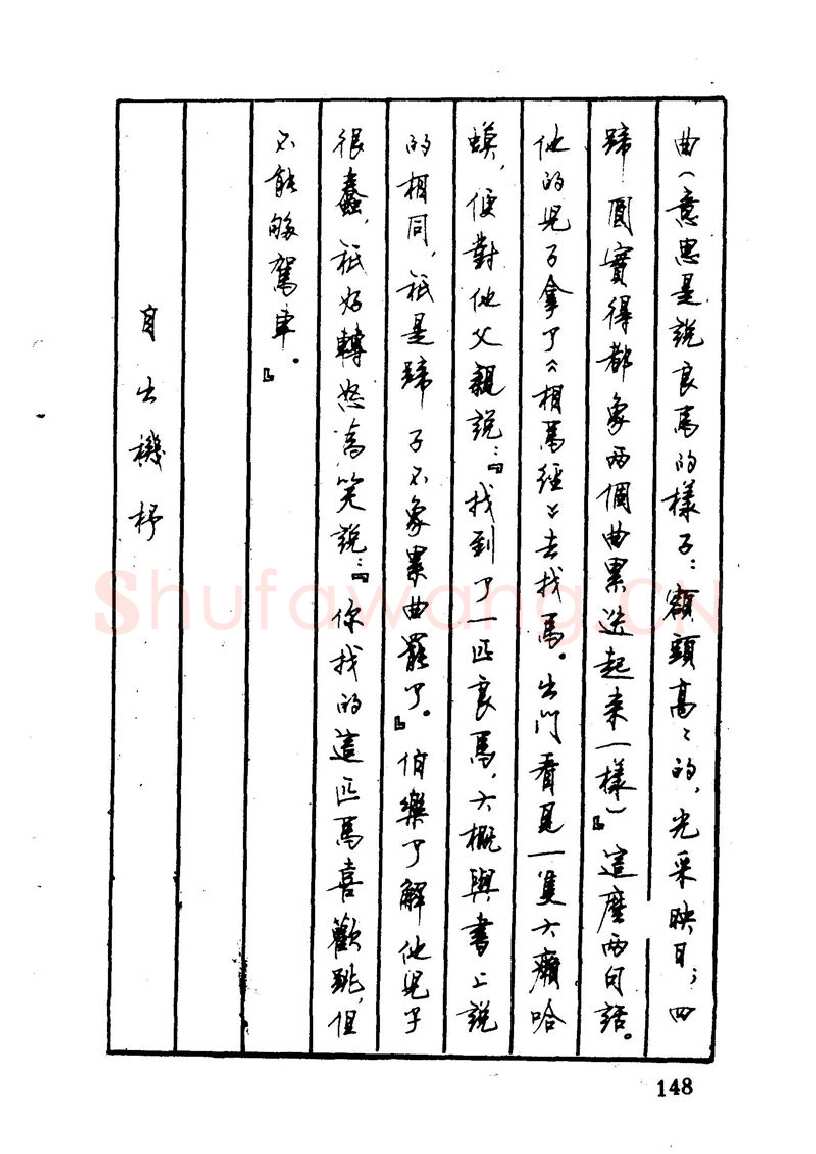 曲(意思是說良馬的樣子:額頭高〻的,光采映日;四
蹄圓實得都象兩個曲累迭起来一樣)』這麼兩句話。
他的兒子拿了《相馬經》去找馬。出門看見一隻大癩哈
蟆,便對他父親說:『找到了一匹良馬,大概與書上說
的相同,祇是蹄子不象累曲罷了。』伯樂了解他兒子
很蠢,祇好轉怒為笑說:『你找的這匹馬喜歡跳,但
不能够駕車。』
自出機杼
148
Shufawang.CN